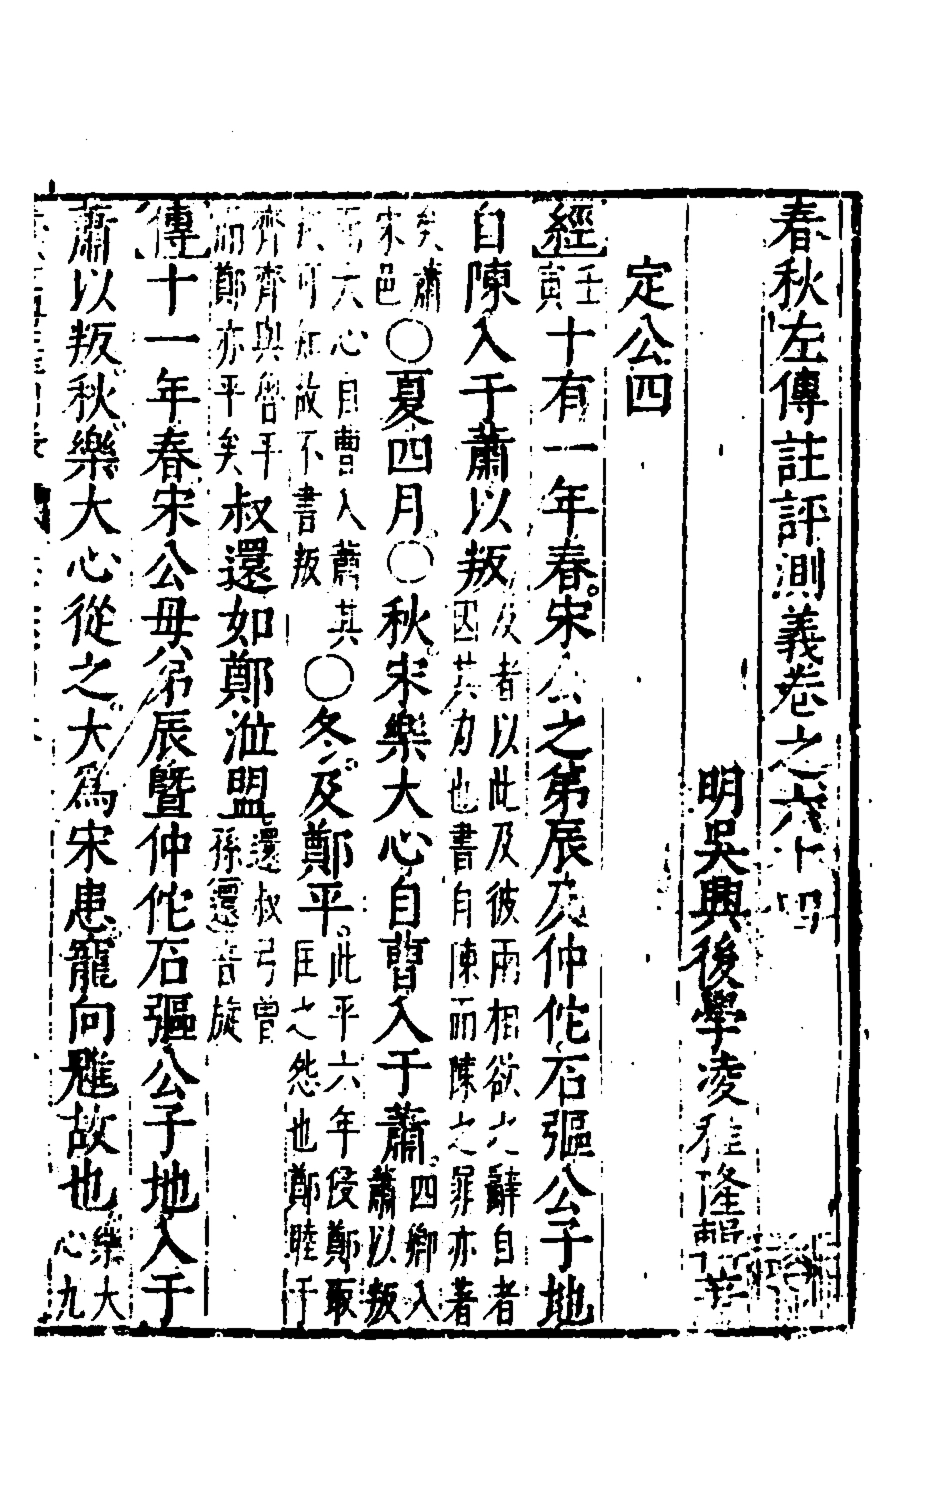 春秋左傳註評測義卷之六十四
明吳興後學凌稚隆輯著
定公四
經壬寅十有一年春宋公之第辰及仲佗石彄公子地
自陳入于蕭以叛及者以此及彼兩相欲之辭自者因其力也書自陳而陳之罪亦著
矣蕭宋邑○夏四月○秋宋樂大心自曹入于蕭四卿入蕭以叛
而大心自曹入蕭其叛可知故不書叛○冬及鄭平此平六年侵鄭取匡之怨也鄭睦于
齊齊與魯平而鄭亦平矣叔還如鄭涖盟還叔弓曾孫還音旋
傳十一年春宋公母弟辰暨仲佗石彄公子地入于
蕭以叛秋樂大心從之大為宋患寵向魋故也樂大心九